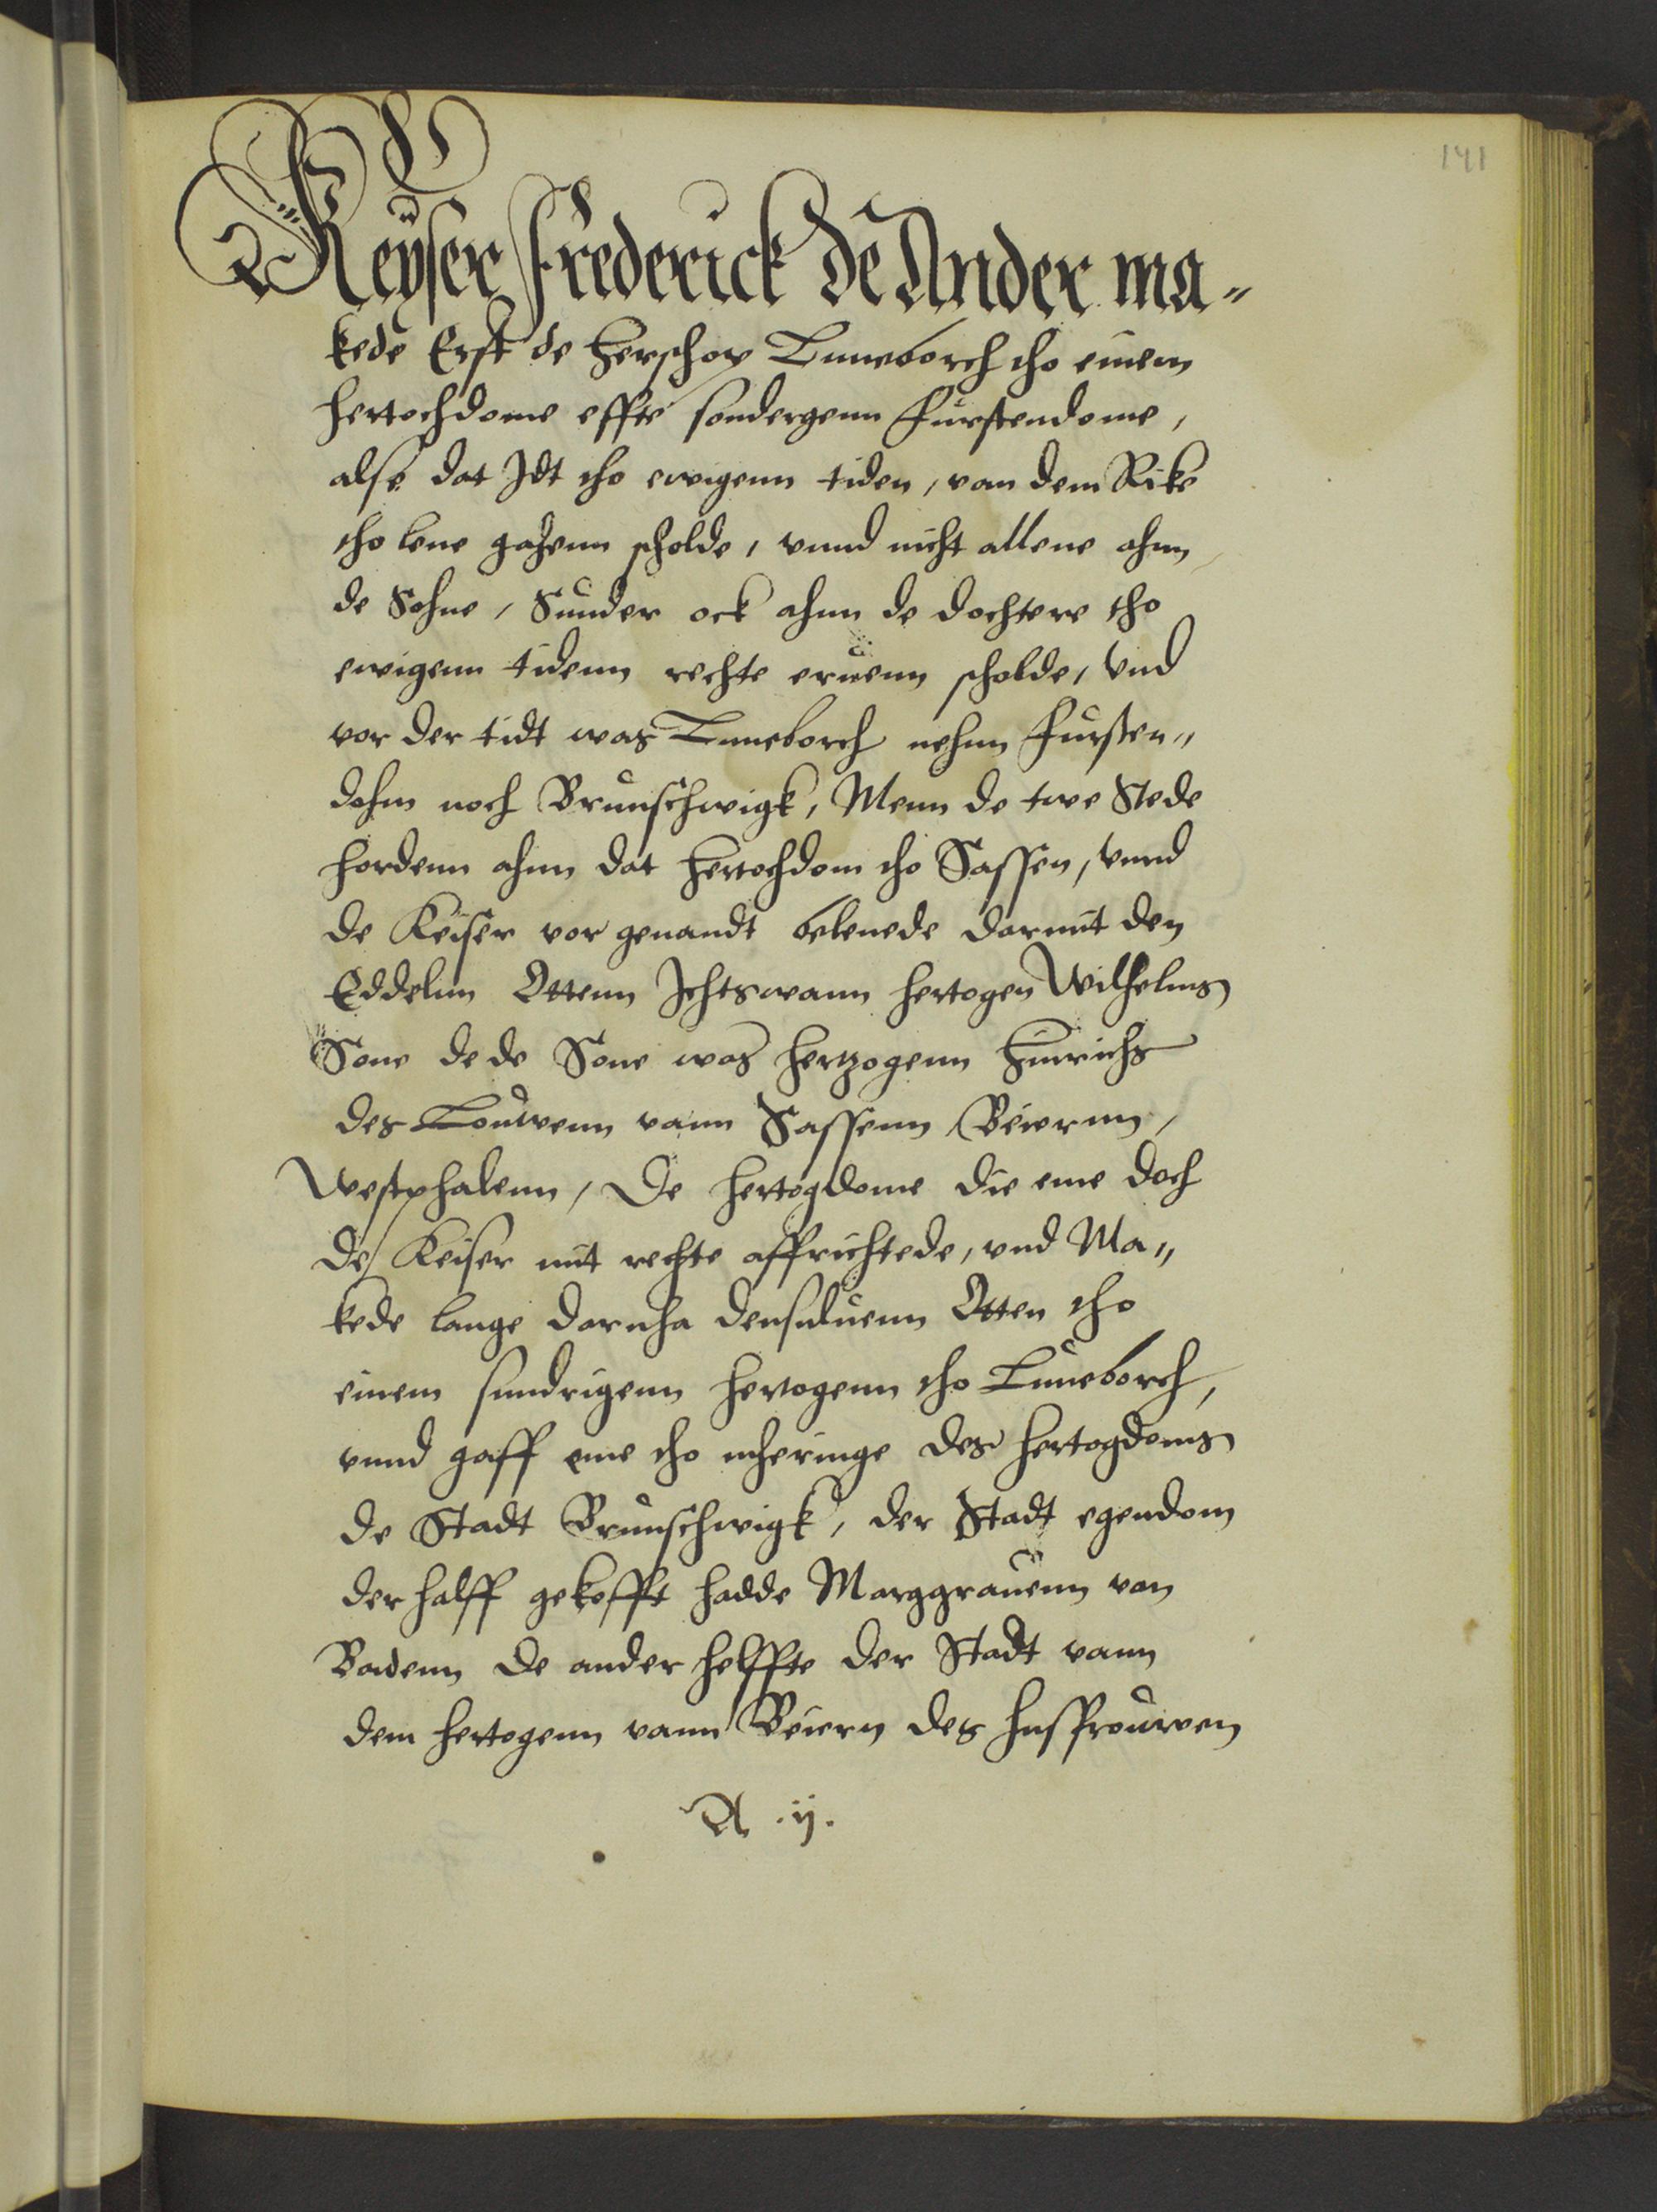 141
Keyser Frederick de Ander ma„
kede Erst de Herschop Luneborch tho einem
hertochdome effte sondergenn Furstendome,
alse dat Idt tho ewigenn tiden, van dem Rike
tho lene gahenn scholde, vnnd nicht allene ahnn
de Sohne, Sunder ock ahnn de dochtere tho
ewigenn tidenn rechte eruenn scholde, Vnd
vor der tidt was Luneborch nehnn Fursten„
dohm noch Brunschwigk, Menn de twe Stede
hordenn ahnn dat Hertochdom tho Sassen, vnnd
de Keiser vor genandt belenede darmit den
Eddelnn Ottenn Ichtswann hertogen Wilhelms
Sone de de Sone was hertzogenn Hinrichs
des Louwenn vann Sassenn Beiernn,
Westphalenn, De hertogdome die eme doch
de Keiser mit rechte affrichtede, vnd Ma„
kede lange darnha densuluenn Otten tho
einem sundrigenn hertogenn tho Luneborch,
vnnd gaff eme tho mheringe des hertogdoms
de Stadt Brunschwigk, der Stadt egendom
der halff gekofft hadde Marggrauenn van
Badenn de ander helffte der Stadt vann
dem hertogenn vann Beiern des husfrouwen
A .ij.